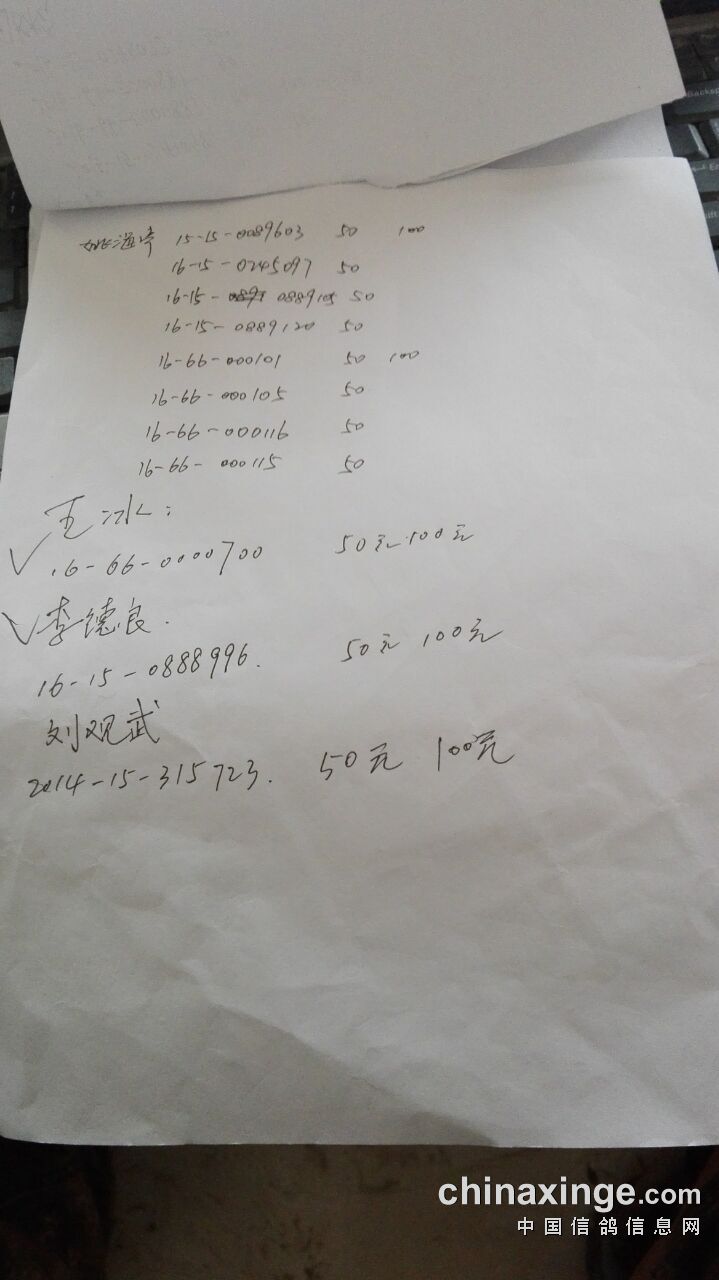 姚海峰 15-15-0089603 50 100
16-15-0245097 50
16-15- 0889105 50
16-15-0889120 50
16-66-000101 50 100
16-66-000105 50
16-66-000116 50
16-66-000115 50
王冰:
√ 16-66-0000700 50元 100元
√ 李德良.
16-15-0888996. 50元 100元
刘观武
2014-15-315723. 50元 100元
chinaxinge.com
中国信鸽信息网